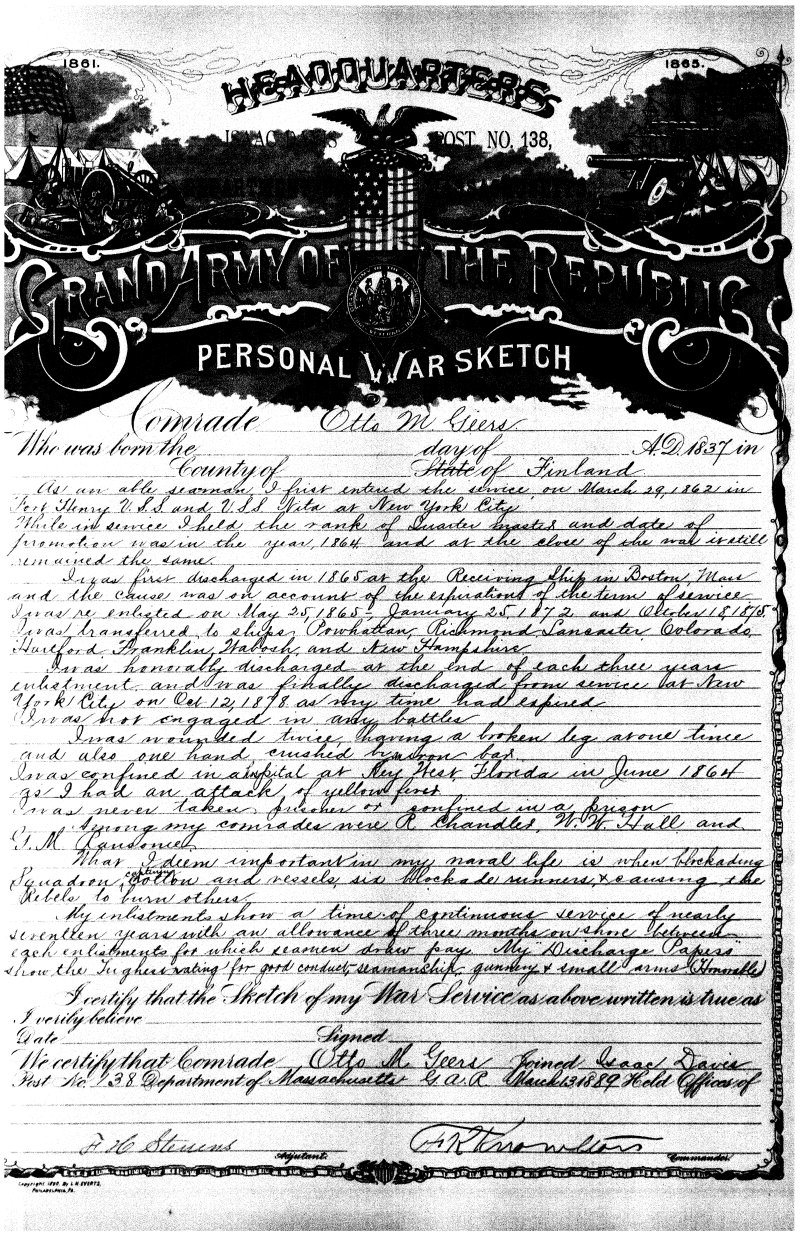 1861.
1865.
HEADQUARTERS
ISAAC DAVIS POST NO. 138,
GRAND ARMY OF THE REPUBLIC
PERSONAL WAR SKETCH
Comrade Otto M Geers
Who was born the day of A.D. 1837 in
County of State of Finland
As an able seaman, I first entered the service, on March 29, 1862 in
Fort Henry U.S.S. and U.S.S. Nita at New York City
While in service I held the rank of Quarter master and date of
promotion was in the year, 1864 and at the close of the war it still
remained the same.
I was first discharged in 1865 at the Receiving Ship in Boston, Mass
and the cause was on account of the expirations of the term of service
I was re enlisted on May 25, 1865, January 25, 1872 and October 18, 1875
I was transferred to ships, Powhattan, Richmond Lancaster, Colorado,
Hartford, Franklin, Wabosh, and New Hampshire
I was honorably discharged at the end of each three years
enlistment and was finally discharged from service at New
York City on Oct 12, 1878 as my time had expired
I was not engaged in any battles
I was wounded twice, having a broken leg at one time
and also one hand crushed by iron bar.
I was confined in a hospital at Key West, Florida in June 1864
as I had an attack of yellow fever
I was never taken prisoner or confined in a prison
Among my comrades were R Chandler, W. W. Hall, and
M. Ransome
What I deem important in my naval life is when blockading
Squadroon, capturing cotton and vessels, six blockade runners, & causing the
Rebels to burn others.
My enlistments show a time of continuous service of nearly
seventeen years with an allowance of three months on shore between
each enlistments for which seamen draw pay. My "Discharge Papers"
show the highest rating for good conduct, seamanship, gunnery & small arms (Honorable)
I certify that the Sketch of my War Service as above written is true as
I verily believe
Date Signed
We certify that Comrade Otto M. Geers Joined Isaac Davis
Post No. 138 Department of Massachusetts G.A.R. March 13 1889 Held Offices of
F H Stevens Adjutant.
F R Knowlton Commander.
Copyright 1890, By L. H. EVERTS,
PHILADELPHIA, PA.